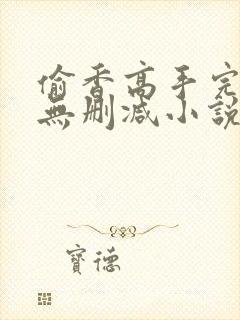 偷香高手完
無刪减小說
寶德